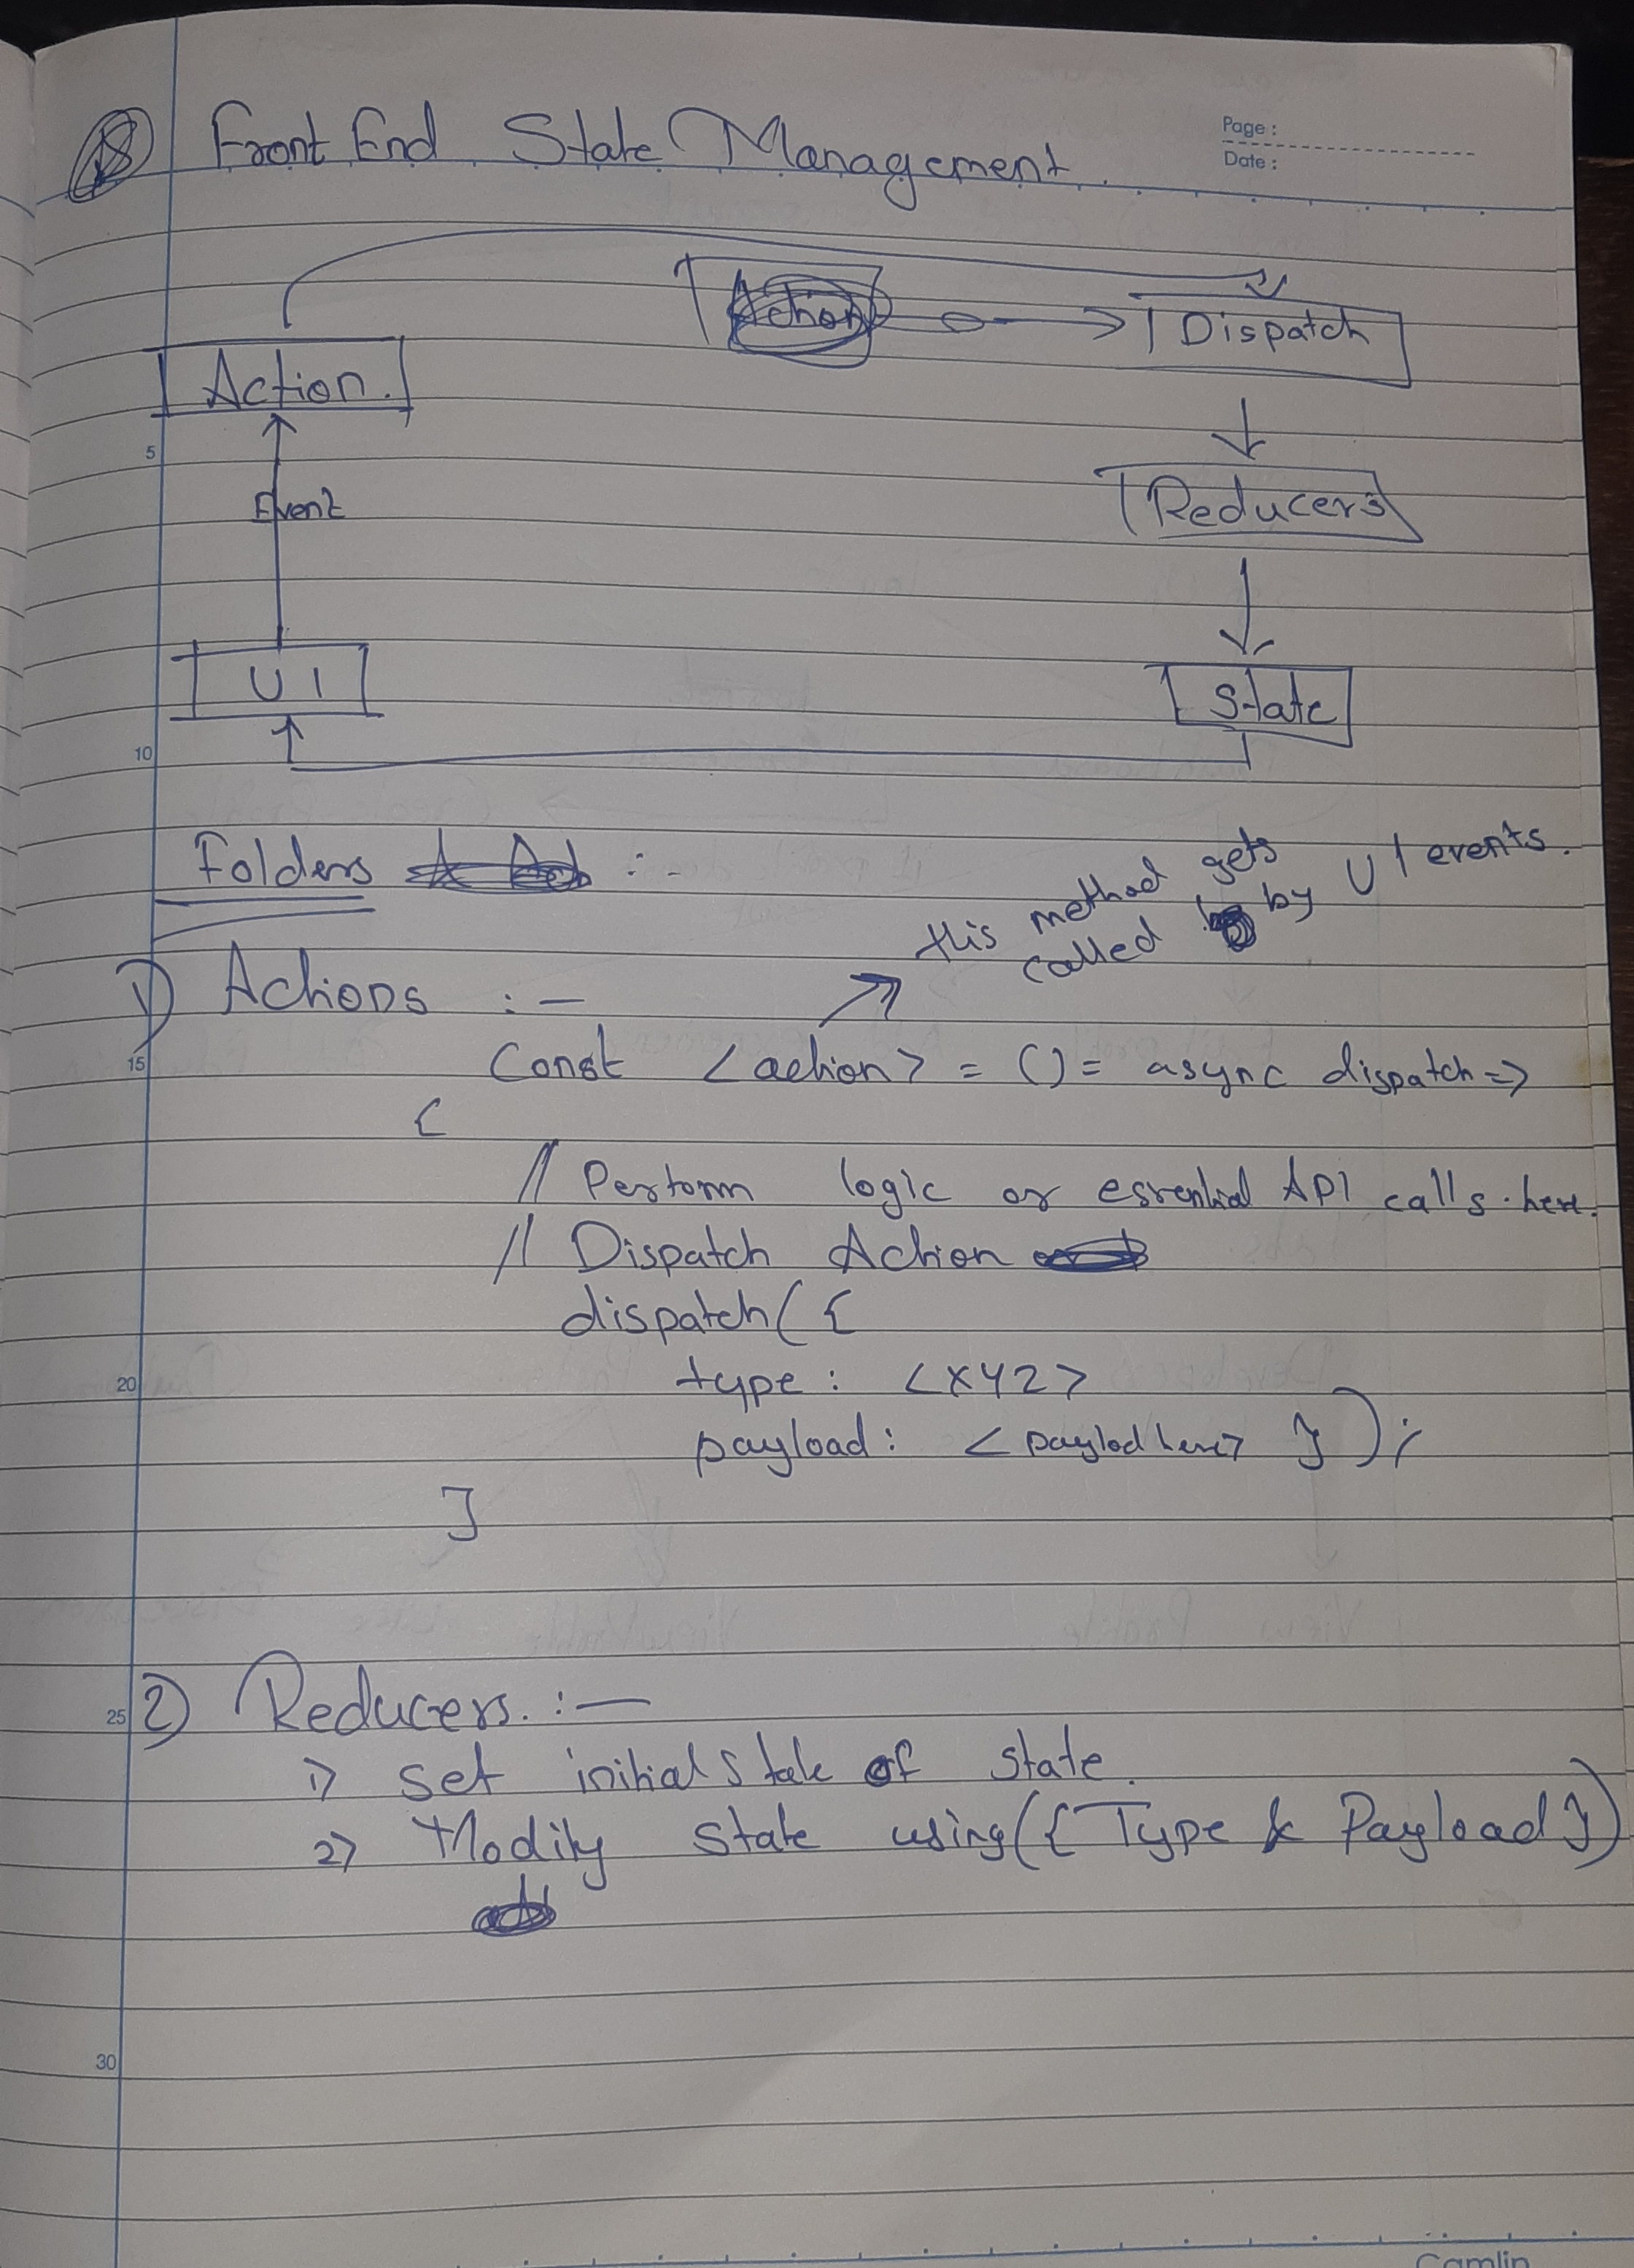 Front End State Management.
Page :
Date :
Action
Dispatch
Action.
5
Event
Reducers
UI
State
10
Folders :-
this method gets
called by UI events.
1) Actions :-
15
Const <action> = () = async dispatch =>
{
// Perform logic or essential API calls here.
// Dispatch Action
dispatch({
20
type: <XYZ>
payload: <paylod here> });
}
25
2) Reducers. :-
1) set initial state of state.
2) Modify state using ({Type & Payload})
30
Camlin